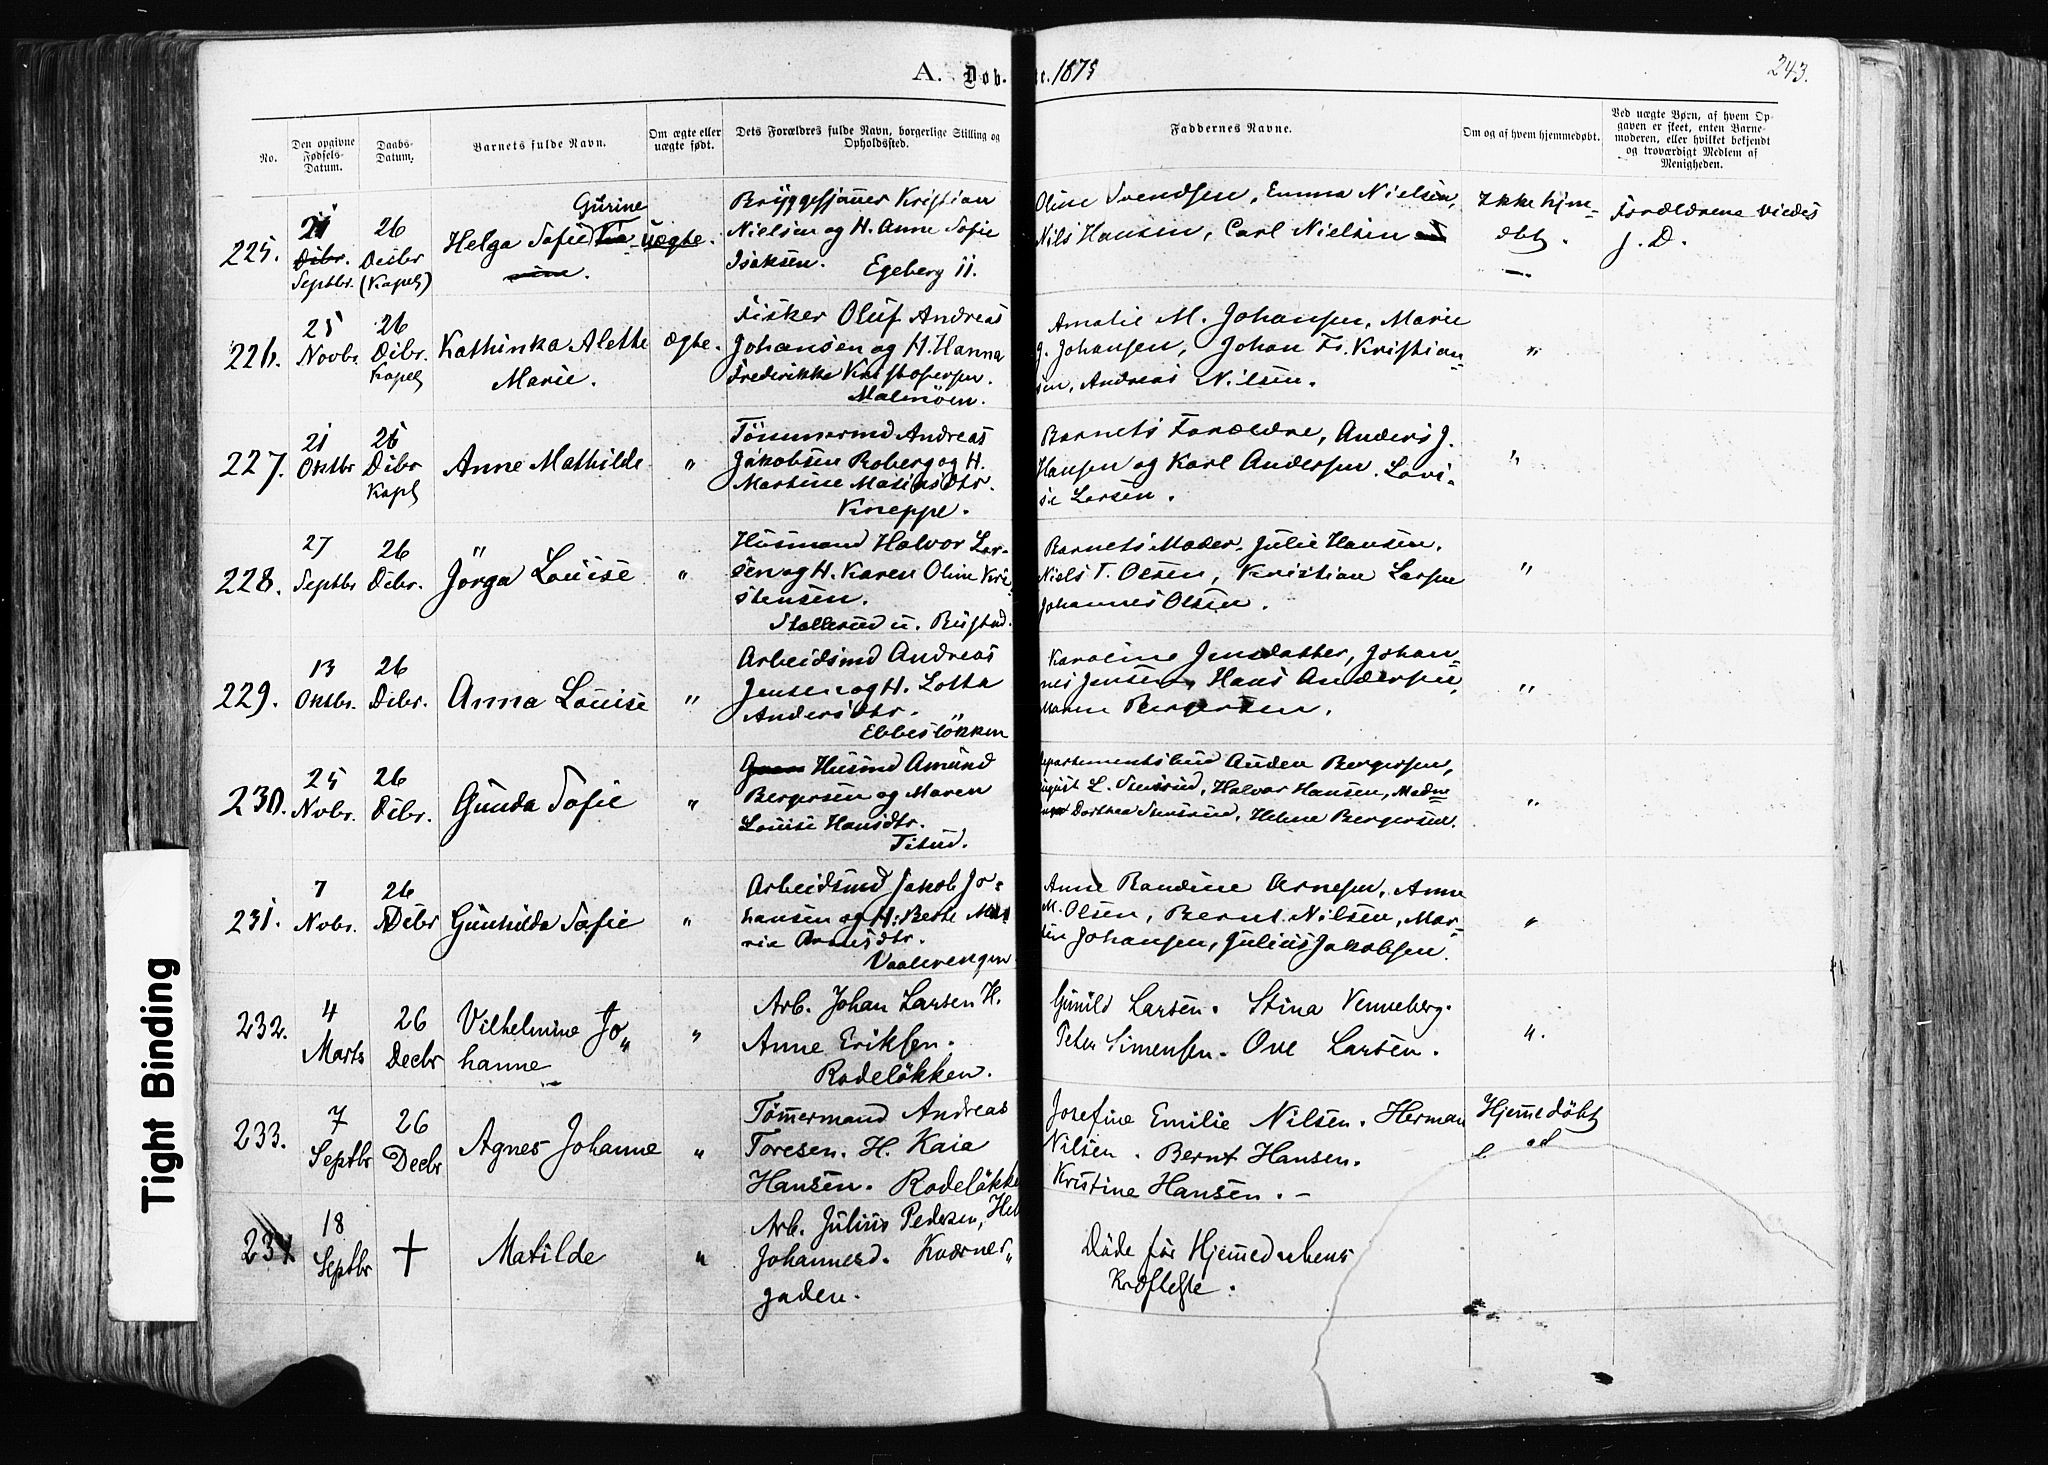 A. Døb. e. 1875
243.
No.
Den opgivne Fødsels-Datum.
Daabs-Datum.
Barnets fulde Navn.
Om ægte eller uægte født.
Dets Forældres fulde Navn, borgerlige Stilling og Opholdssted.
Faddernes Navne.
Om og af hvem hjemmedøbt.
Ved uægte Børn, af hvem Op-
gaven er skeet, enten Barne-
moderen, eller hvilket bekjendt
og troværdigt Medlem af
Menigheden.
225.
21 Dcbr. Septbr.
26 Dcbr (Kapel)
Helga Sofie Gurine
Uægte.
Bryggesjauer Kristian
Nielsen og H. Anne Sofie
Isaksen. Egeberg 11.
Oline Svendsen, Emma Nielsen,
Nils Hansen, Carl Nielsen
Ikke hjem=
døbt.
Forældrene viedes
s. D.
226.
25 Novbr.
26 Dcbr. Kapel
Kathinka Alette
Marie.
Ægte.
Fisker Oluf Andreas
Johansen og H. Hanna
Frederikke Kristofersen.
Malmøen.
Amalie M. Johansen, Marie
J. Johansen, Johan Fr. Kristian=
sen, Andreas Nilsen.
"
227.
21 Oktbr
26 Dcbr Kapl
Anne Mathilde
"
Tömmermd Andreas
Jakobsen Roberg og H.
Martine Mathisdtr.
Kneppe.
Barnets Forældre, Anders J.
Hansen og Karl Andersen. Lovi=
se Larsen.
"
228.
27 Septbr
26 Dcbr.
Jörga Louise
"
Husmand Halvor Lar=
sen og H. Karen Oline Kri
stensen.
Stallerud u. Rustad.
Barnets Moder. Julie Hansen.
Niels T. Olsen, Kristian Larsen
Johannes Olsen.
"
229.
13 Oktbr.
26 Dcbr.
Anna Louise
"
Arbeidsmd Andreas
Jensen og H. Lotta
Andersdtr.
Ebbeslökken
Karoline Jensdatter, Johan=
nes Jensen, Hans Andersen,
Maren Bergersen.
"
230.
25 Novbr.
26 Dcbr.
Gunda Sofie
"
Husmd Amund
Bergersen og Maren
Louise Hansdtr.
Tisud.
Departementsbud Auden Bergersen,
August L. Svensrud, Halvor Hansen,
Dorthea Svensrud, Helene Bergersen.
"
231.
7 Nvbr.
26 Dcbr
Gunhilda Sofie
"
Arbeidsmd Jakob Jo=
hansen og H. Berte Ma
rie Arnesdtr.
Vaalerengen
Anne Randine Arnesen, Anne
M. Olsen, Bernt Nilsen, Mar=
tin Johansen, Julius Jakobsen.
"
232.
4 Marts
26 Decbr
Vilhelmine Jo„
hanne
"
Arb. Johan Larsen H.
Anne Eriksen.
Rodelökken.
Gunild Larsen. Stina Venneberg.
Peter Simensen. Ove Larsen.
"
233.
7 Septbr
26 Decbr
Agnes Johanne
"
Tömmermand Andreas
Toresen. H. Kaia
Hansen. Rodelökke
Josefine Emilie Nilsen. Herman
Nilsen. Bernt Hansen.
Kristine Hansen. –
Hjemmedöbt
234
18 Septbr
†
Matilde
"
Arb. Julius Pedersen,
Johannesd. Kværner„
gaden.
Döde för Hjemmedaabens
Kræftelse.
Tight Binding